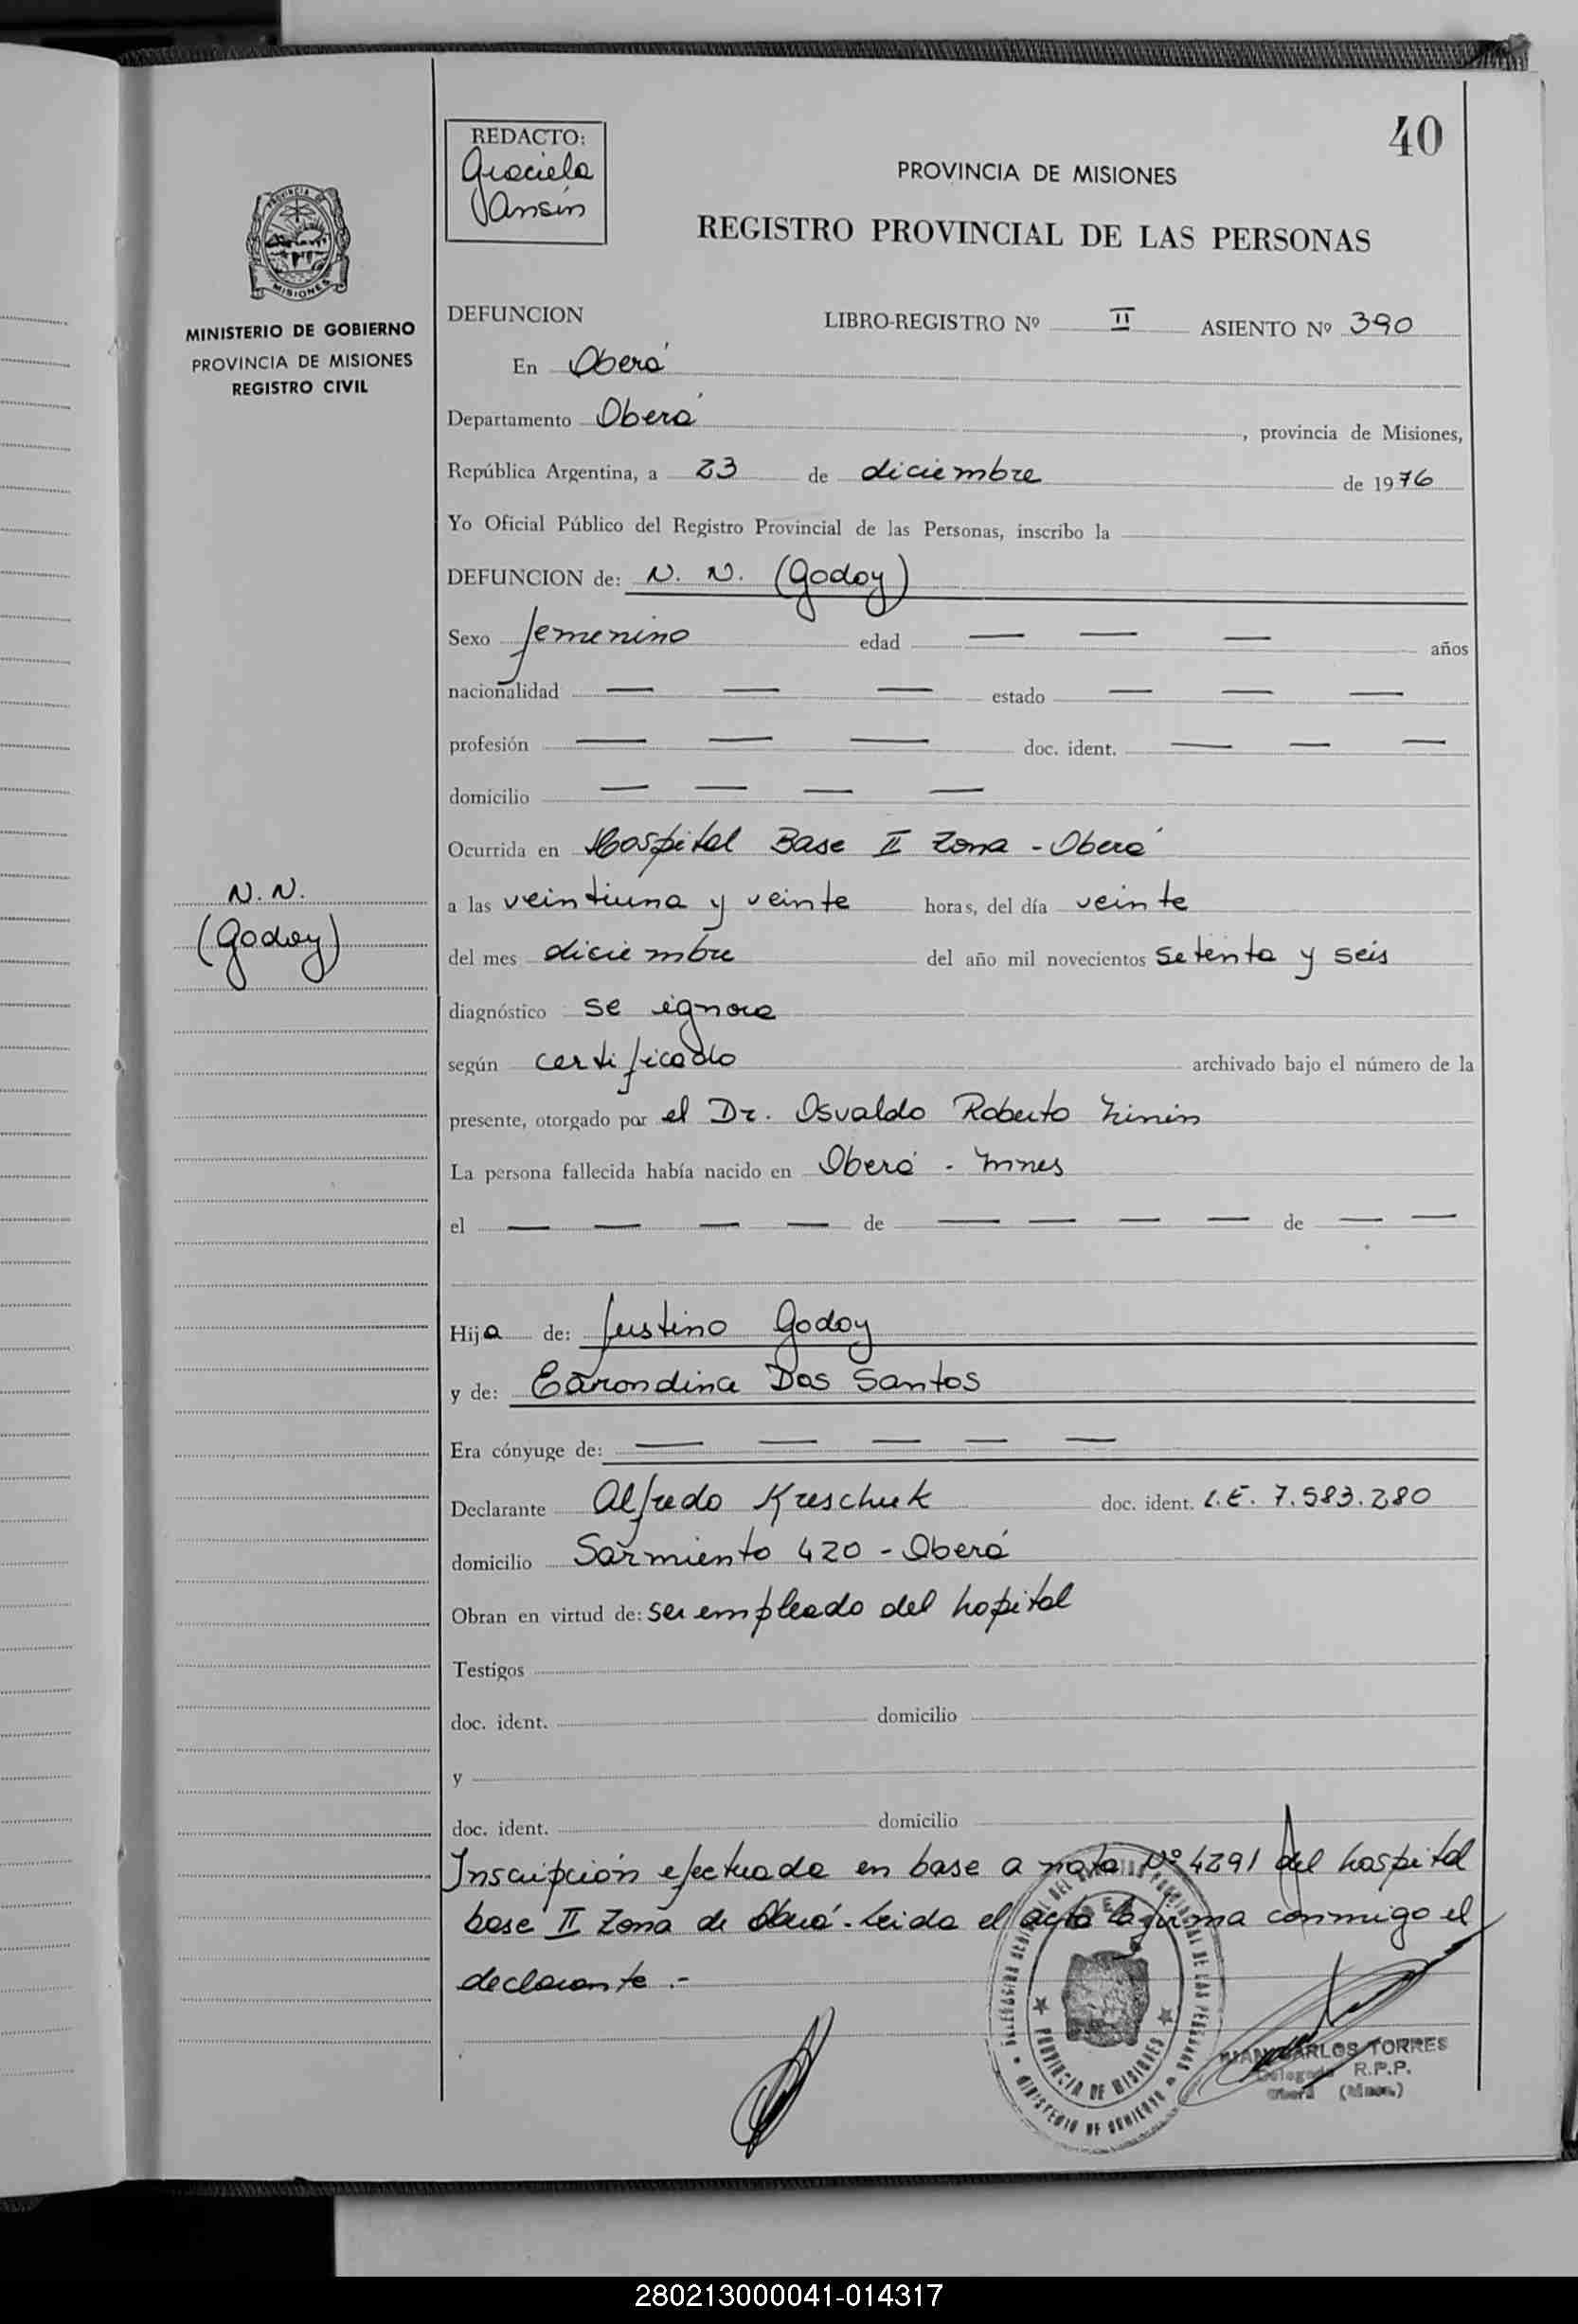 40
REDACTO:
Graciela
Vansin
PROVINCIA DE MISIONES
REGISTRO PROVINCIAL DE LAS PERSONAS
PROVINCIA DE
MISIONES
MINISTERIO DE GOBIERNO
PROVINCIA DE MISIONES
REGISTRO CIVIL
DEFUNCION LIBRO-REGISTRO Nº II ASIENTO Nº 390
En Oberá
Departamento Oberá, provincia de Misiones,
República Argentina, a 23 de diciembre de 1976
Yo Oficial Público del Registro Provincial de las Personas, inscribo la
DEFUNCION de: N. N. (Godoy)
Sexo femenino edad — — — años
nacionalidad — — — estado — — —
profesión — — — doc. ident. — — —
domicilio — — — —
Ocurrida en Hospital Base II Zona - Oberá
N. N.
(Godoy)
a las veintiuna y veinte horas, del día veinte
del mes diciembre del año mil novecientos setenta y seis
diagnóstico se ignora
según certificado archivado bajo el número de la
presente, otorgado por el Dr. Osvaldo Roberto
La persona fallecida había nacido en Oberá - Mnes
el — — — — de — — — — de — —
Hija de: Justino Godoy
y de: Dos Santos
Era cónyuge de: — — — — —
Declarante Alfredo Kreschuk doc. ident. L.E. 7.583.280
domicilio Sarmiento 420 - Oberá
Obran en virtud de: ser empleado del hopital
Testigos
doc. ident. domicilio
y
doc. ident. domicilio
Inscripción efectuada en base a nota Nº 4291 del hospital
base II Zona de Oberá. Leida el acta la firma conmigo el
declarante.-
PROVINCIA DE MISIONES
MINISTERIO DE GOBIERNO
JUAN CARLOS TORRES
Delegado R.P.P.
Oberá (Mnes.)
280213000041-014317